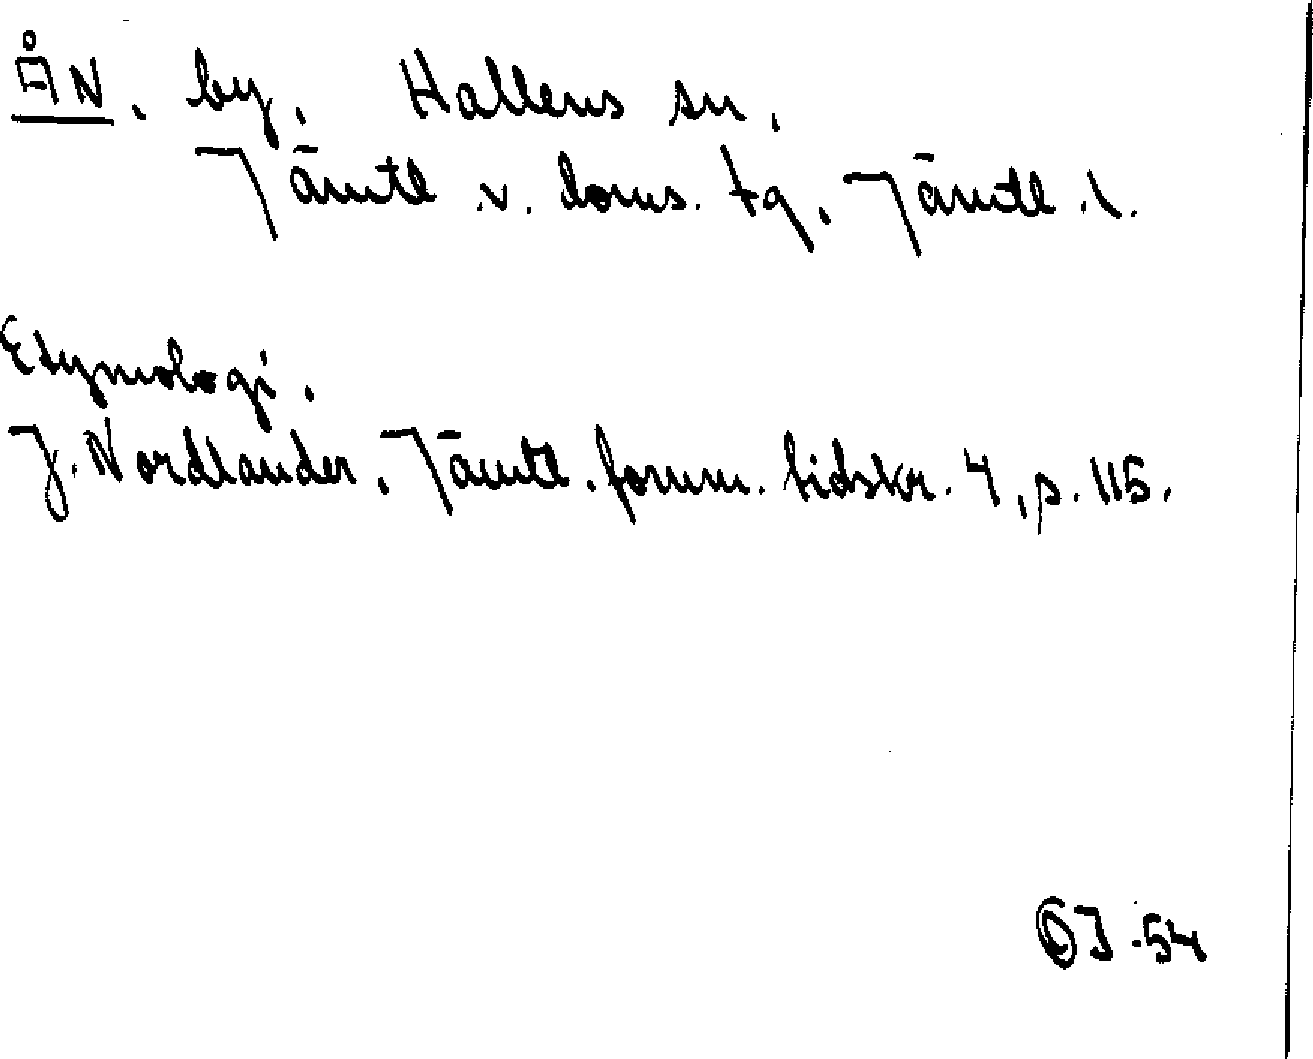 ÅN. by. Hallens sn.
Jämtl. v. doms. tg. Jämtl. l.
Etymologi.
J. Nordlander. Jämtl. fornm. tidskr. 4, p. 115.
J -54